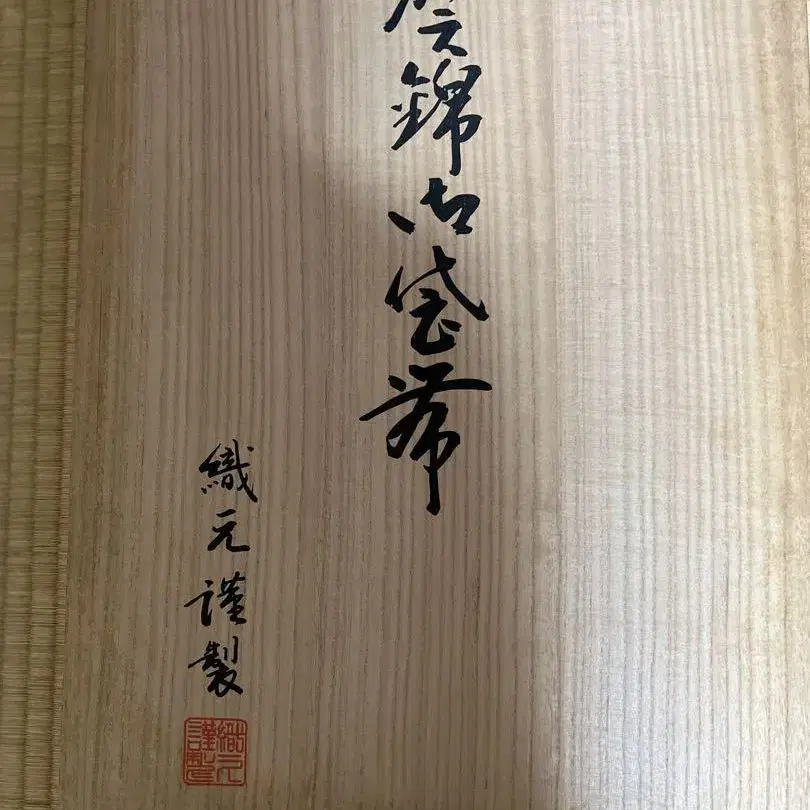 錦御袋帯
織元謹製
織元謹製